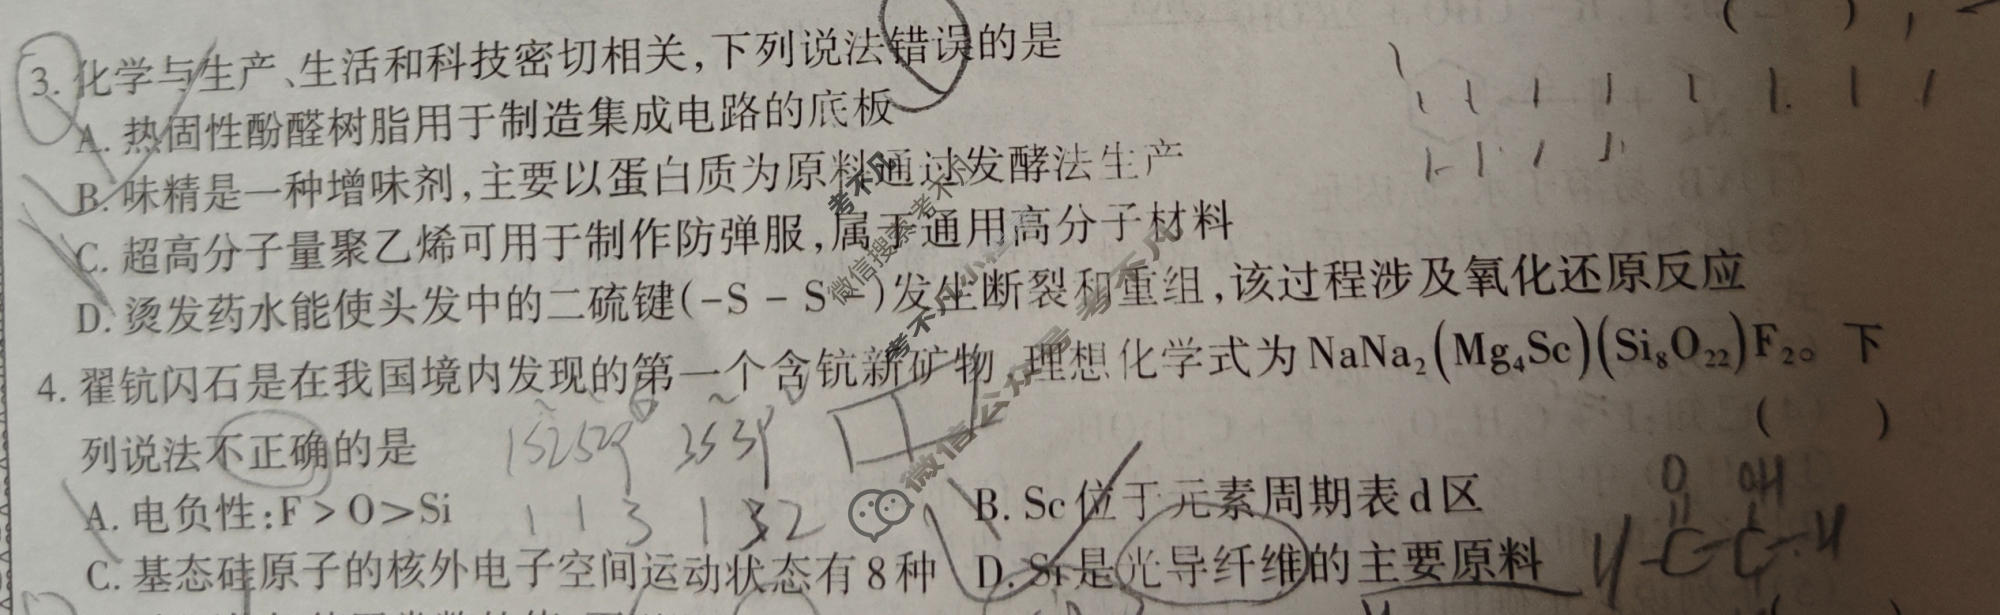 3. 化学与生产、生活和科技密切相关,下列说法错误的是 ( )
A. 热固性酚醛树脂用于制造集成电路的底板
B. 味精是一种增味剂,主要以蛋白质为原料通过发酵法生产
C. 超高分子量聚乙烯可用于制作防弹服,属于通用高分子材料
D. 烫发药水能使头发中的二硫键(-S-S-)发生断裂和重组,该过程涉及氧化还原反应
4. 翟钪闪石是在我国境内发现的第一个含钪新矿物 理想化学式为NaNa₂(Mg₄Sc)(Si₈O₂₂)F₂。下
列说法不正确的是 ( )
A. 电负性:F>O>Si B. Sc位于元素周期表d区
C. 基态硅原子的核外电子空间运动状态有8种 D. Si是光导纤维的主要原料
1 1 3 1 3 2
O OH
H-C-C-H
考不凡
微信搜索考不凡
微信公众号 考不凡